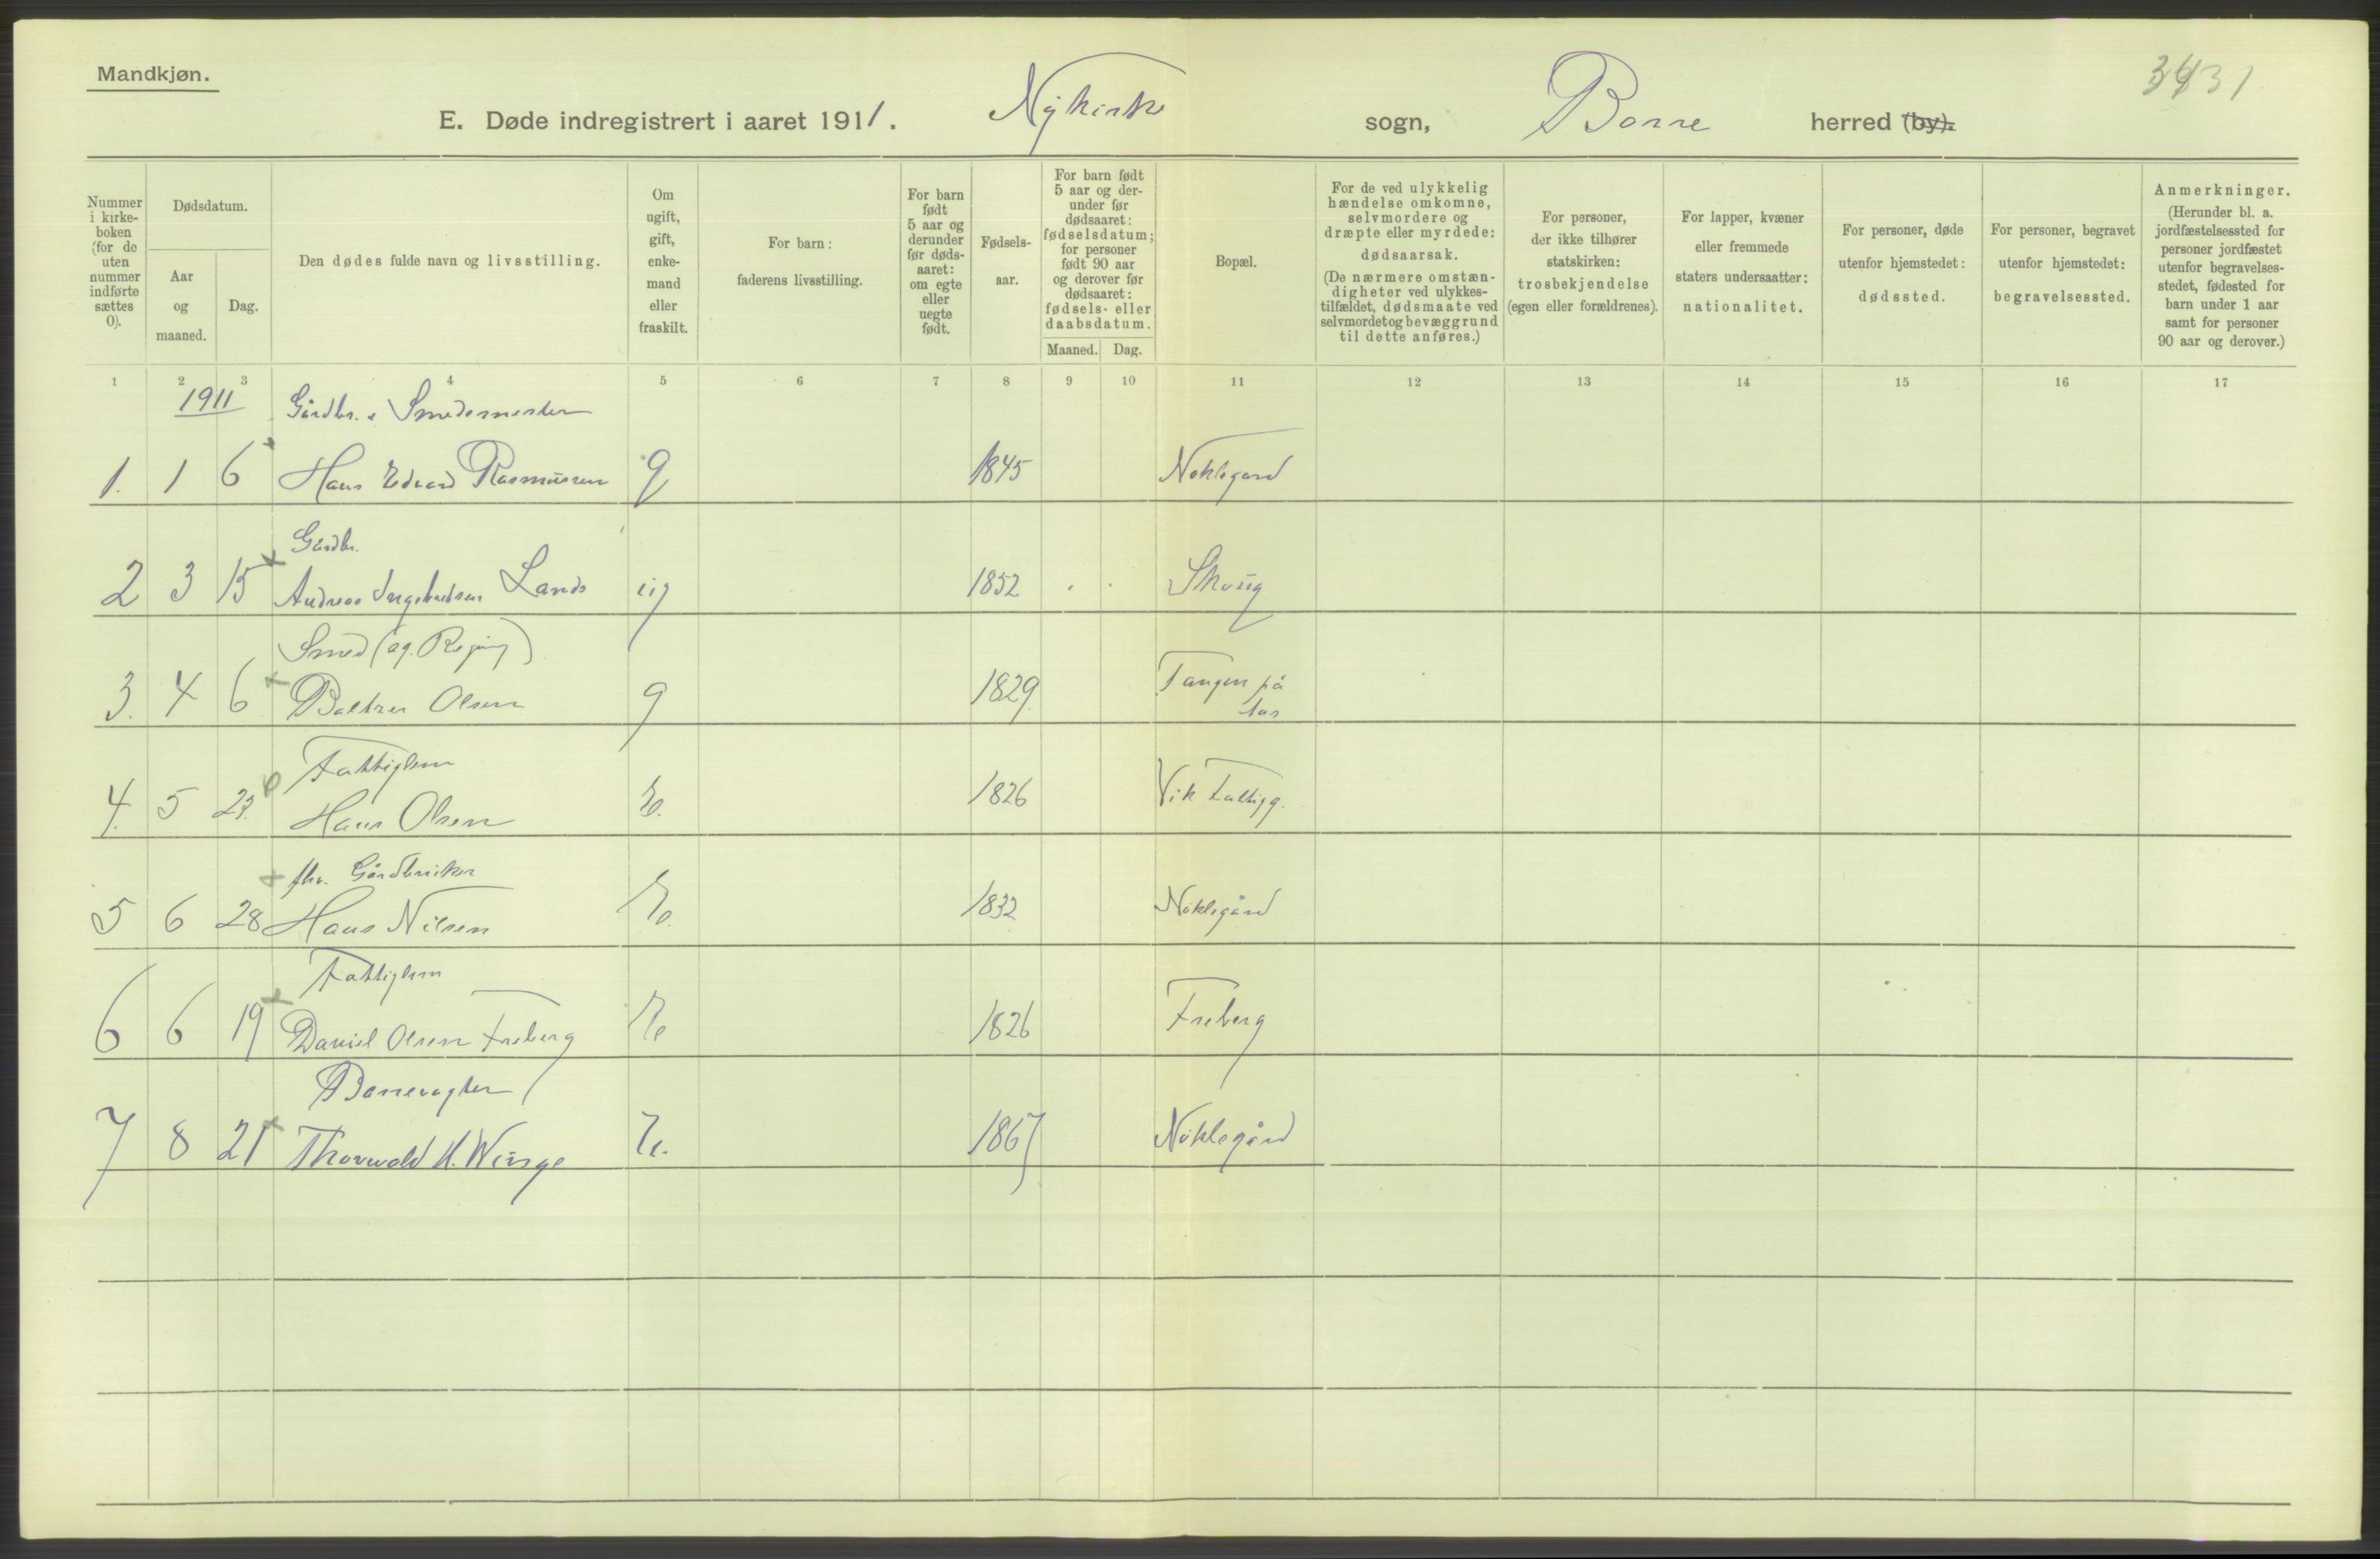 Mandkjøn.
E. Døde indregistrert i aaret 1911. Nykirke sogn, Borre herred (by).
3431
Nummer i kirke-boken (for de uten nummer indførte sættes 0).
Dødsdatum.
Aar og maaned.
Dag.
Den dødes fulde navn og livsstilling.
Om ugift, gift, enke-mand eller fraskilt.
For barn: faderens livsstilling.
For barn født 5 aar og derunder før døds-aaret: om egte eller uegte født.
Fødsels-aar.
For barn født 5 aar og der-under før dødsaaret: fødselsdatum; for personer født 90 aar og derover før dødsaaret: fødsels- eller daabsdatum.
Maaned. Dag.
Bopæl.
For de ved ulykkelig hændelse omkomne, selvmordere og dræpte eller myrdede: dødsaarsak.
(De nærmere omstæn-digheter ved ulykkes-tilfældet, dødsmaate ved selvmordet og bevæggrund til dette anføres.)
For personer, der ikke tilhører statskirken: trosbekjendelse (egen eller forældrenes).
For lapper, kvæner eller fremmede staters undersaatter: nationalitet.
For personer, døde utenfor hjemstedet: dødssted.
For personer, begravet utenfor hjemstedet: begravelsessted.
Anmerkninger.
(Herunder bl. a. jordfæstelsessted for personer jordfæstet utenfor begravelses-stedet, fødested for barn under 1 aar samt for personer 90 aar og derover.)
1 2 3 4 5 6 7 8 9 10 11 12 13 14 15 16 17
1911 Gårdbr. & Smedemester
1. 1 6 Hans Edvard Rasmussen g 1845 Noklegard
Gårdbr.
2 3 15 Andreas Ingebretsen Lands ug 1852 Skoug
Smed (og. )
3. 4 6 Baltzer Olsen g 1829 Tangen på
4. 5 23. Fattiglem
Hans Olsen E. 1826 Vik Fattigg.
fhv. Gårdbruker
5 6 28 Hans Nilsen E. 1832 Nøklegård
Fattiglem
6 6 19 Daniel Olsen Freberg E 1826 Freberg
Banevagter
7 8 21 Thorwald H. Winge E. 1867 Nøklegård